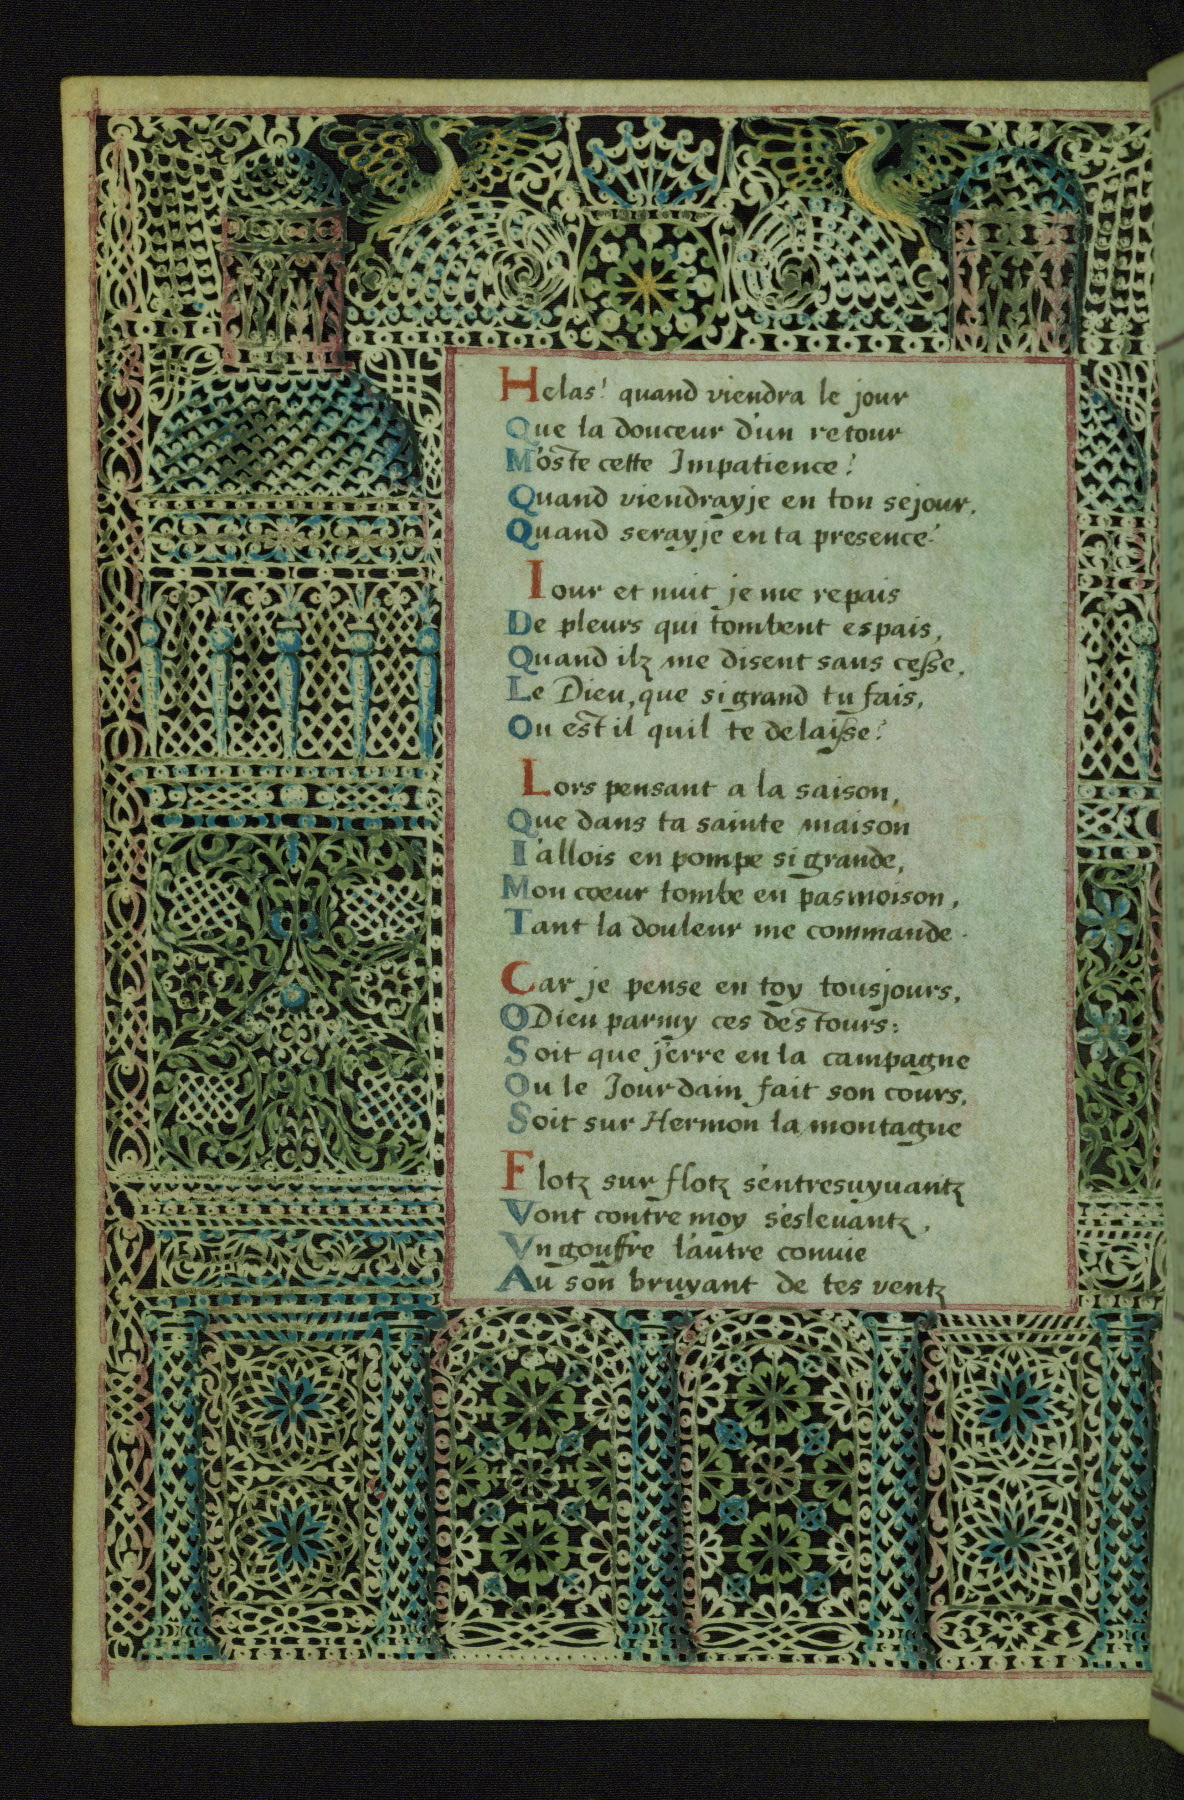 Helas! quand viendra le jour
Que la douceur d'un retour
M'oste cette Impatience?
Quand viendrayje en ton sejour,
Quand serayje en ta presence?
Iour et nuit je me repais
De pleurs qui tombent espais,
Quand ilz me disent sans cesse,
Le Dieu, que si grand tu fais,
Ou est il quil te delaisse?
Lors pensant a la saison,
Que dans ta sainte maison
I'allois en pompe si grande,
Mon coeur tombe en pasmoison,
Tant la douleur me commande.
Car je pense en toy tousjours,
O Dieu parmy ces destours:
Soit que j'erre en la campagne
Ou le Jourdain fait son cours,
Soit sur Hermon la montagne
Flotz sur flotz s'entresuyuantz
Vont contre moy s'esleuantz,
Vn gouffre l'autre conuie
Au son bruyant de tes ventz